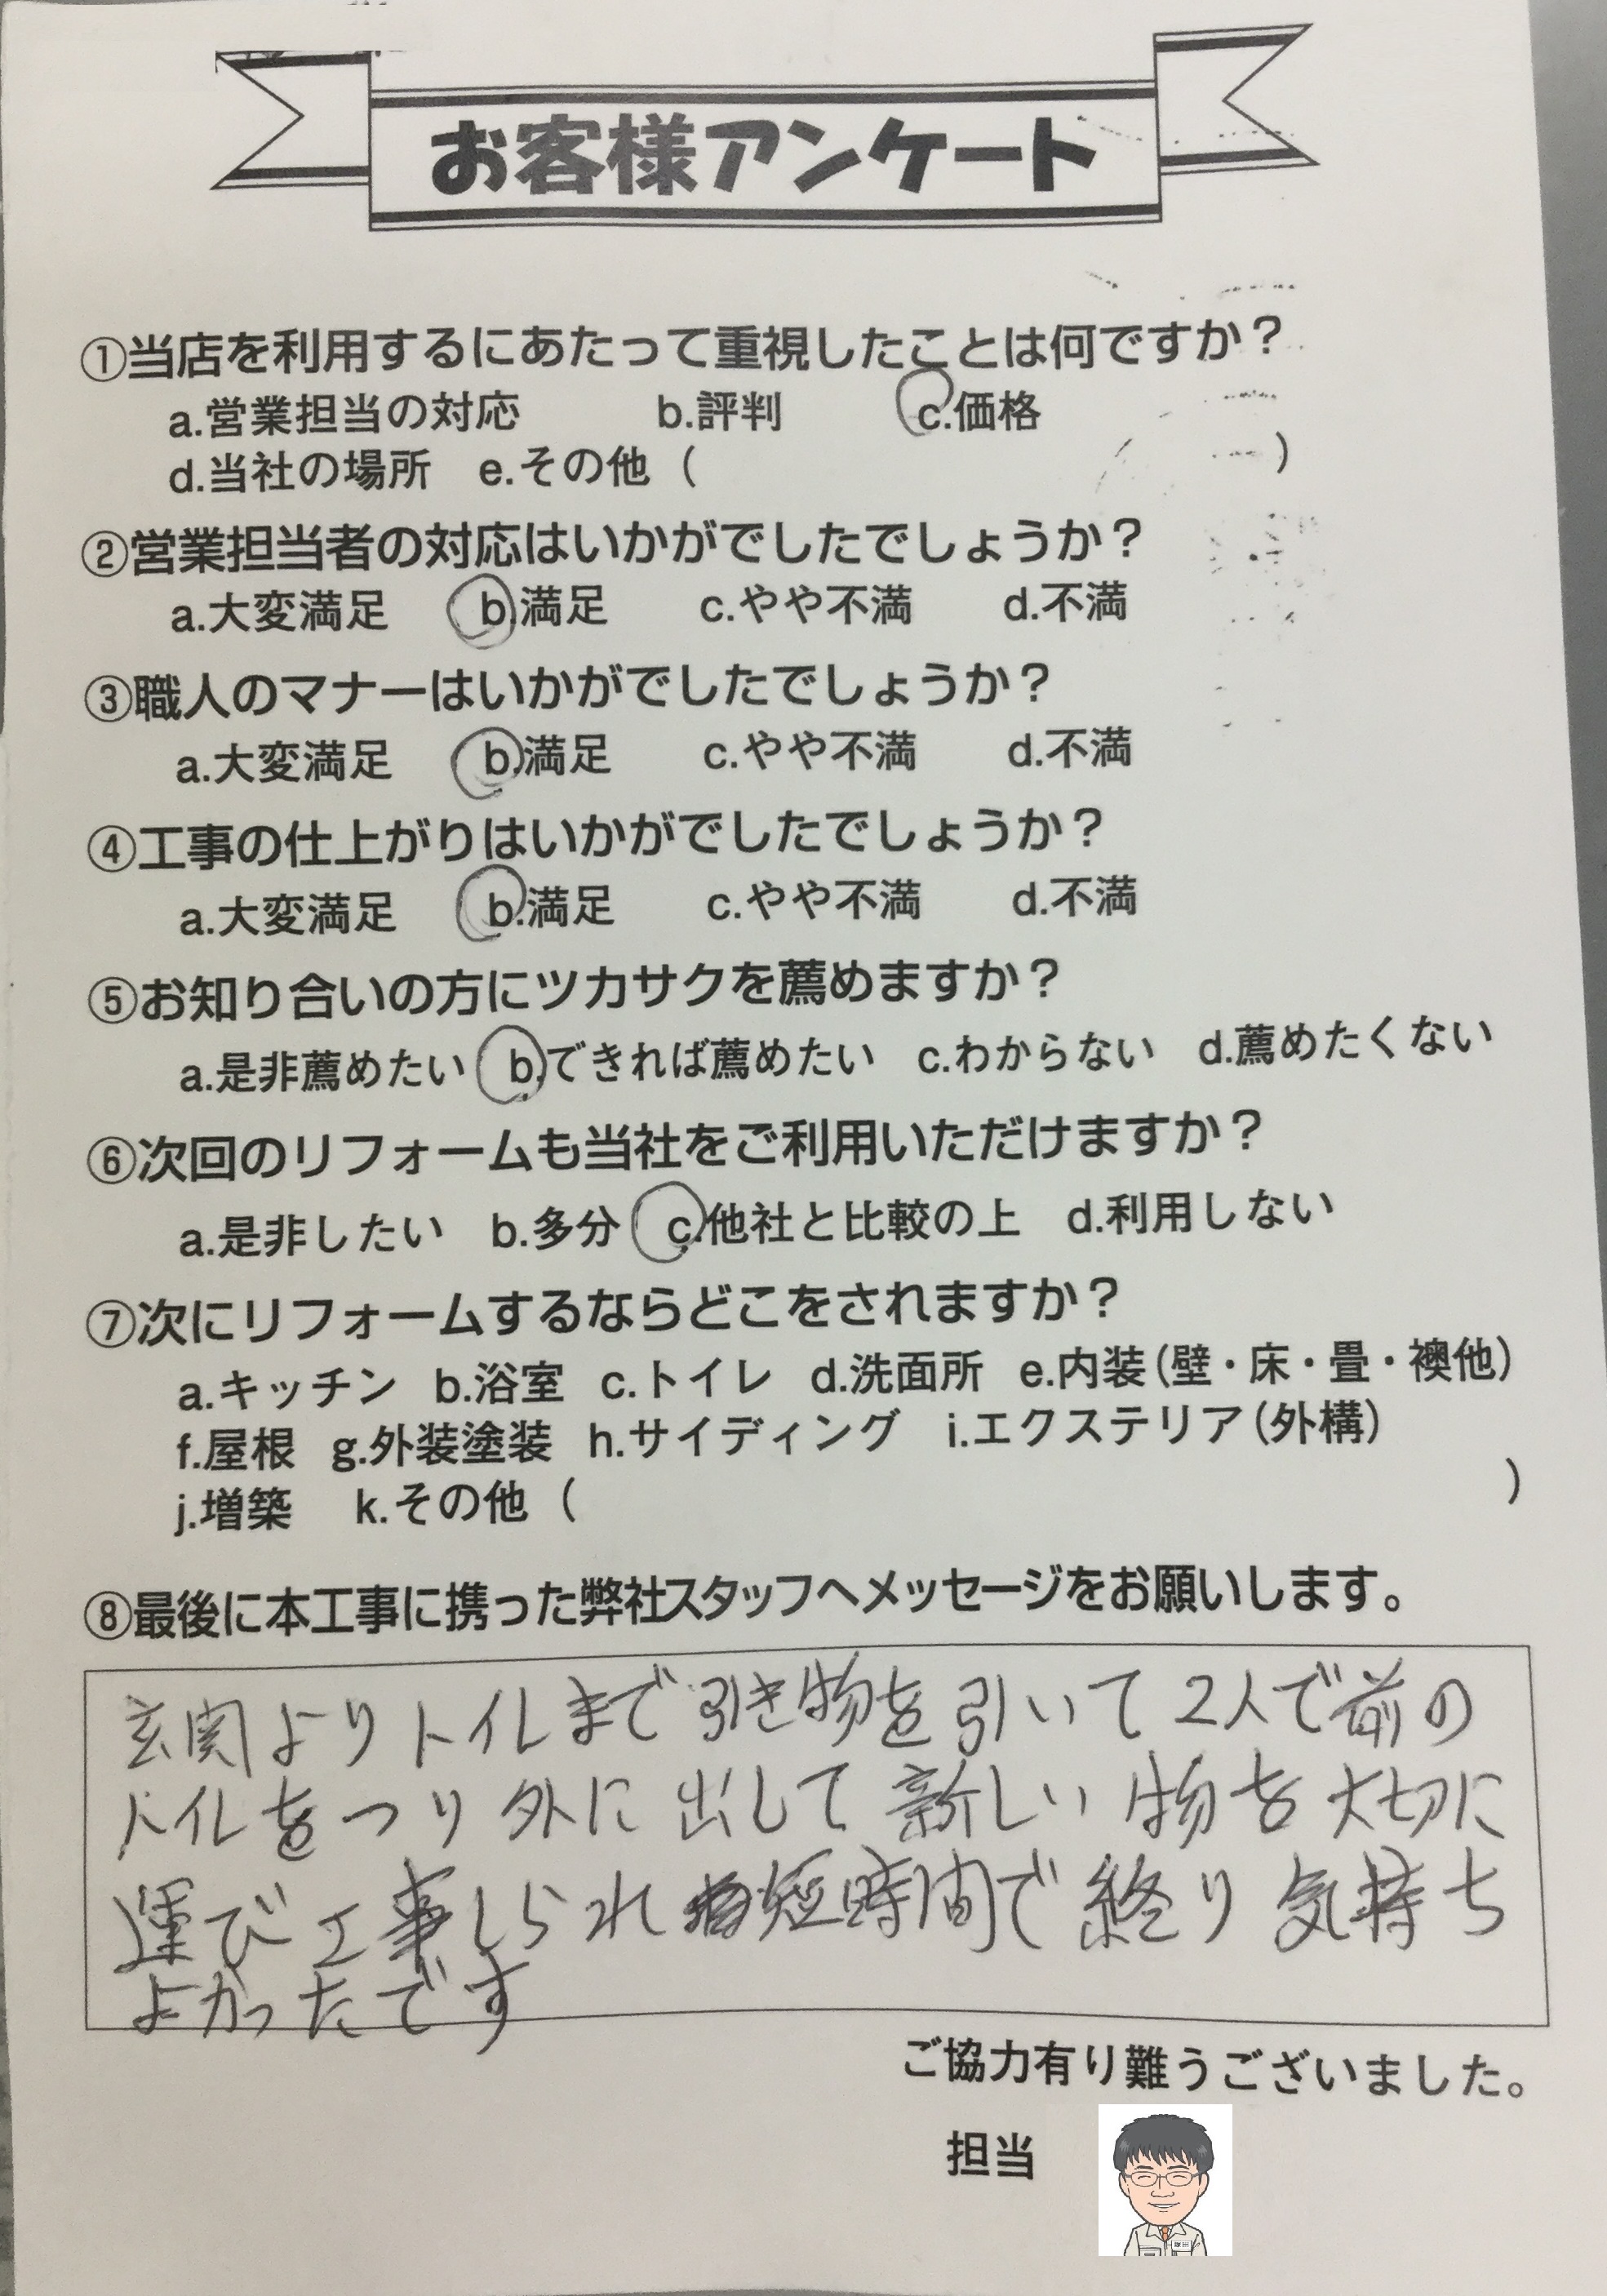 お客様アンケート
①当店を利用するにあたって重視したことは何ですか？
a.営業担当の対応 b.評判 c.価格
d.当社の場所 e.その他（ ）
②営業担当者の対応はいかがでしたでしょうか？
a.大変満足 b.満足 c.やや不満 d.不満
③職人のマナーはいかがでしたでしょうか？
a.大変満足 b.満足 c.やや不満 d.不満
④工事の仕上がりはいかがでしたでしょうか？
a.大変満足 b.満足 c.やや不満 d.不満
⑤お知り合いの方にツカサクを薦めますか？
a.是非薦めたい b.できれば薦めたい c.わからない d.薦めたくない
⑥次回のリフォームも当社をご利用いただけますか？
a.是非したい b.多分 c.他社と比較の上 d.利用しない
⑦次にリフォームするならどこをされますか？
a.キッチン b.浴室 c.トイレ d.洗面所 e.内装（壁・床・畳・襖他）
f.屋根 g.外装塗装 h.サイディング i.エクステリア（外構）
j.増築 k.その他（ ）
⑧最後に本工事に携った弊社スタッフへメッセージをお願いします。
玄関よりトイレまで引き物を引いて2人で前の
トイレをつり外に出して新しい物を大切に
運び工事しられ短時間で終り気持ち
よかったです
ご協力有り難うございました。
担当